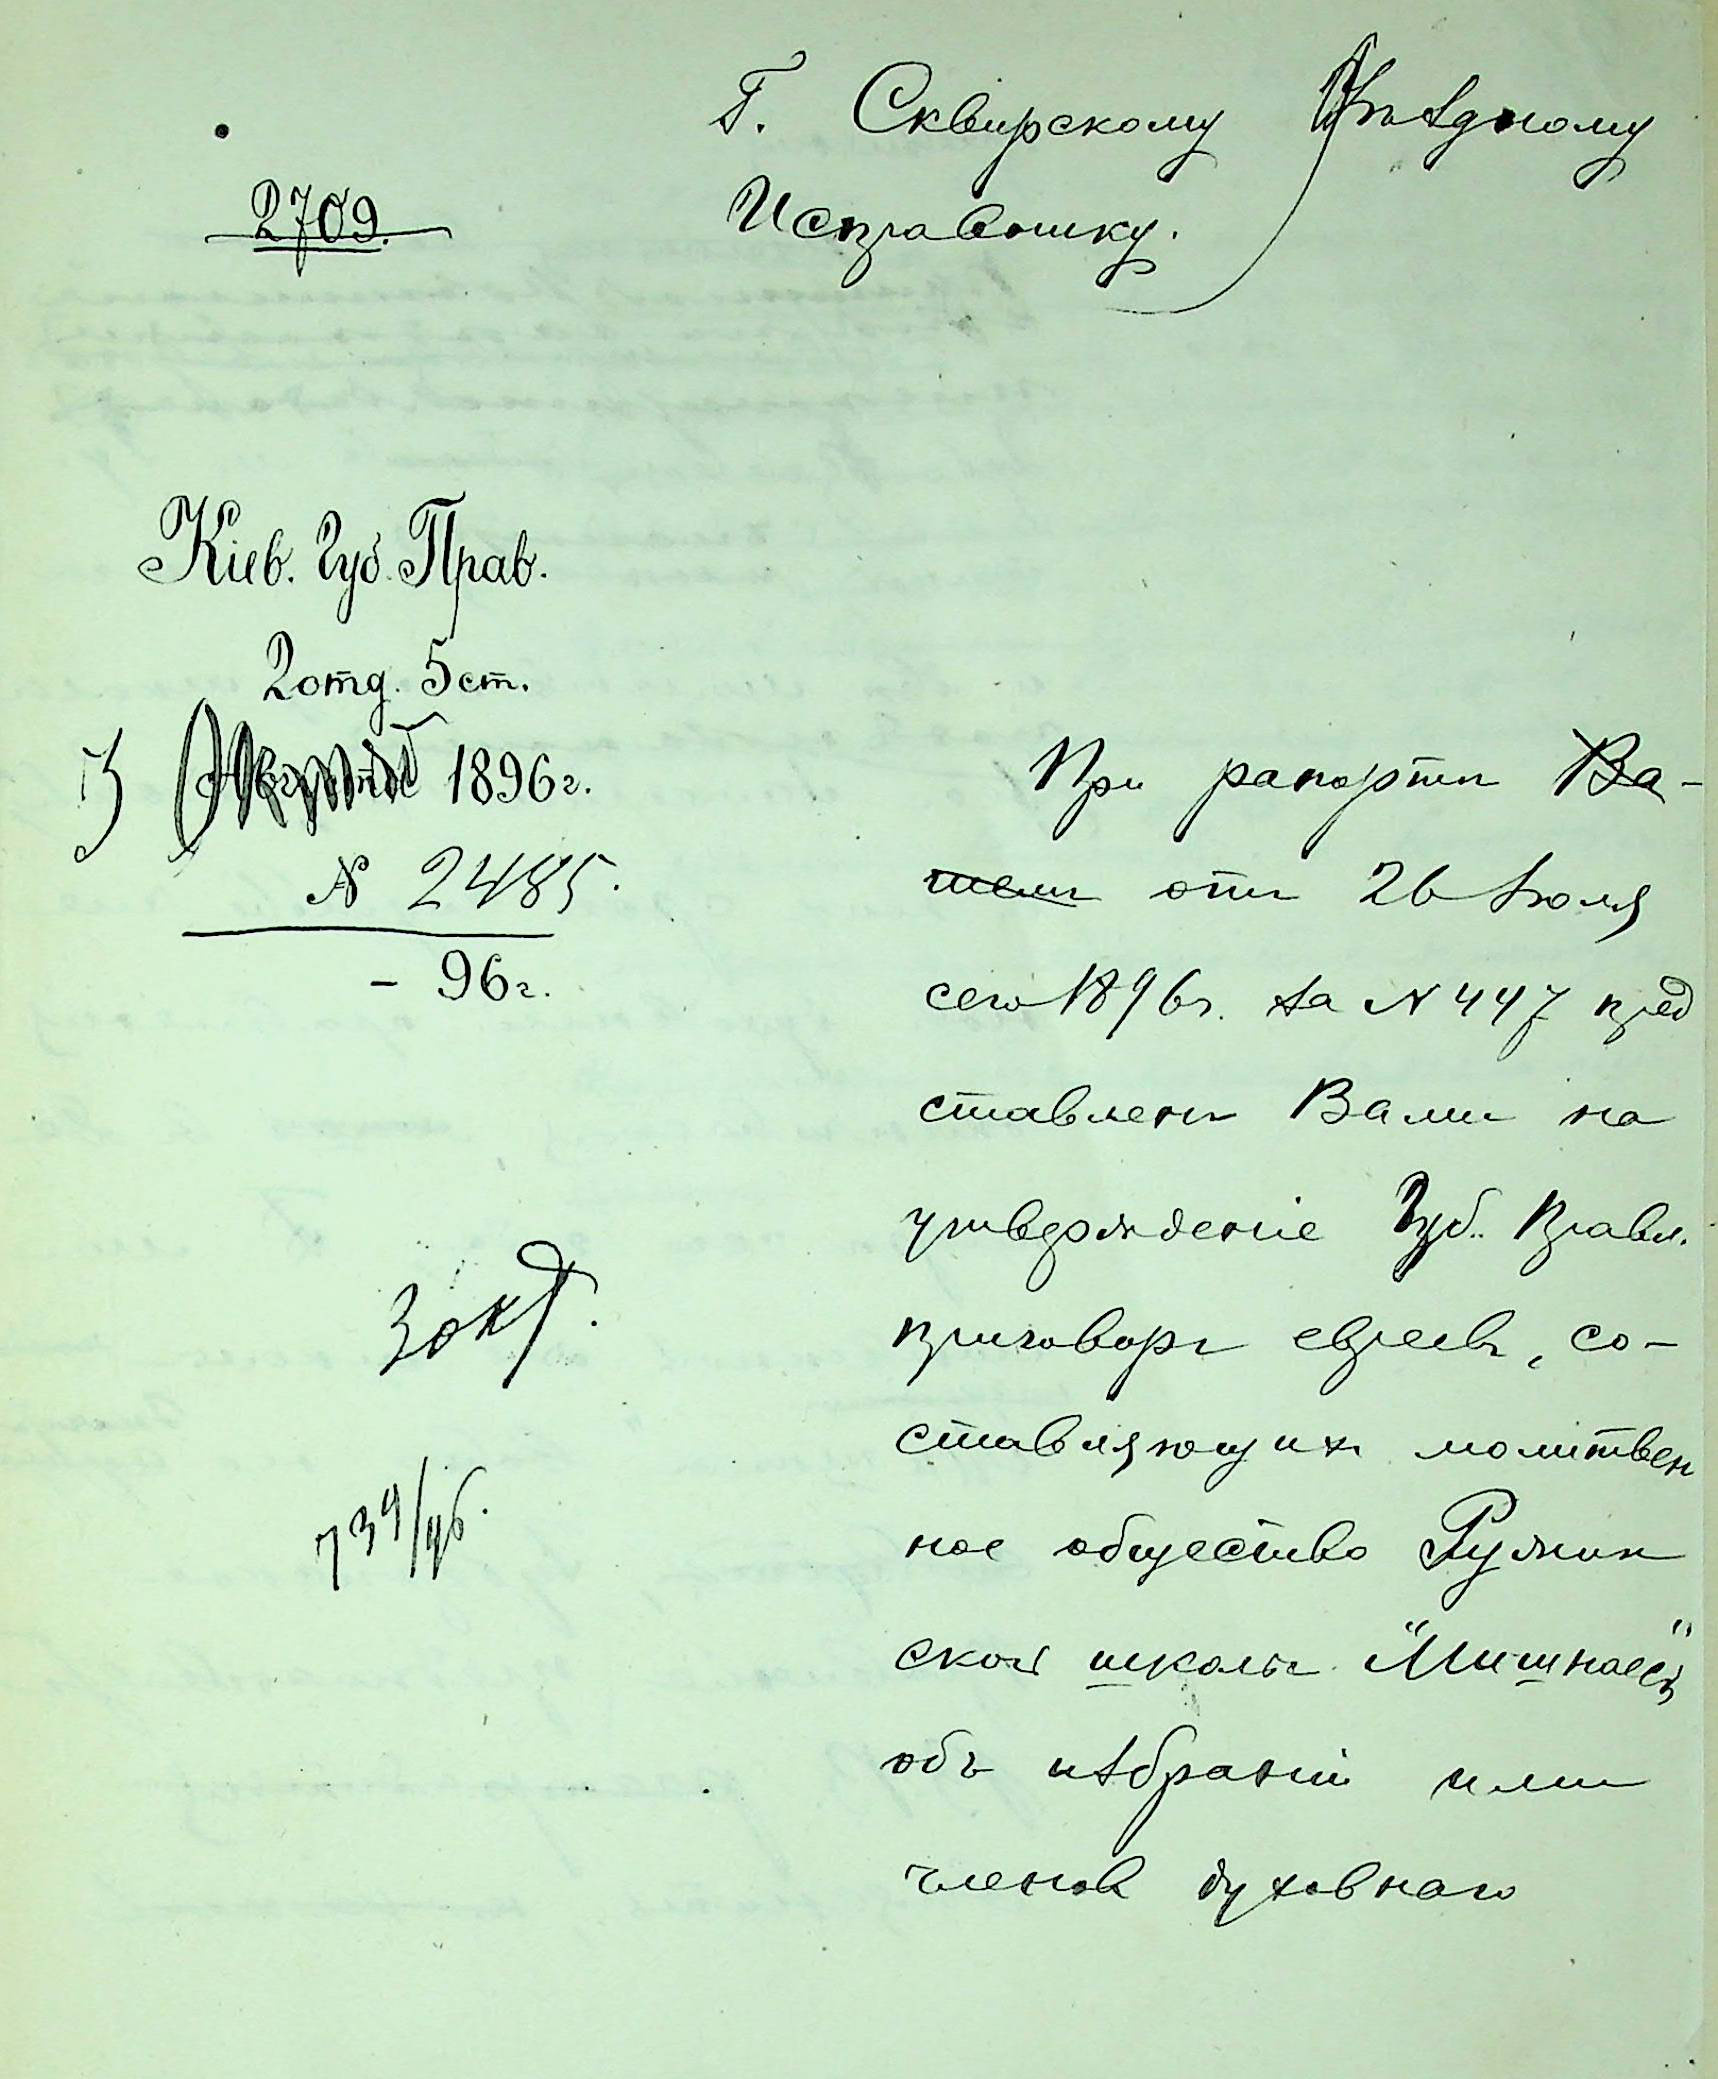 Г. Сквирскому Уѣздному
Исправнику.
2709.
Кіев. Губ. Прав.
2 отд. 5 ст.
3 1896 г.
№ 2485.
- 96 г.
3 окт.
739/96.
При рапортѣ Ва-
шемъ отъ 26 Іюля
сего 1896 г. за № 447 пред
ставленъ Вами на
утвержденіе Губ. Правл.
приговоръ евреевъ, со-
ставляющихъ молитвен
ное общество Ружин
ской школы "Мишнаесъ"
объ избраніи ими
членов духовнаго